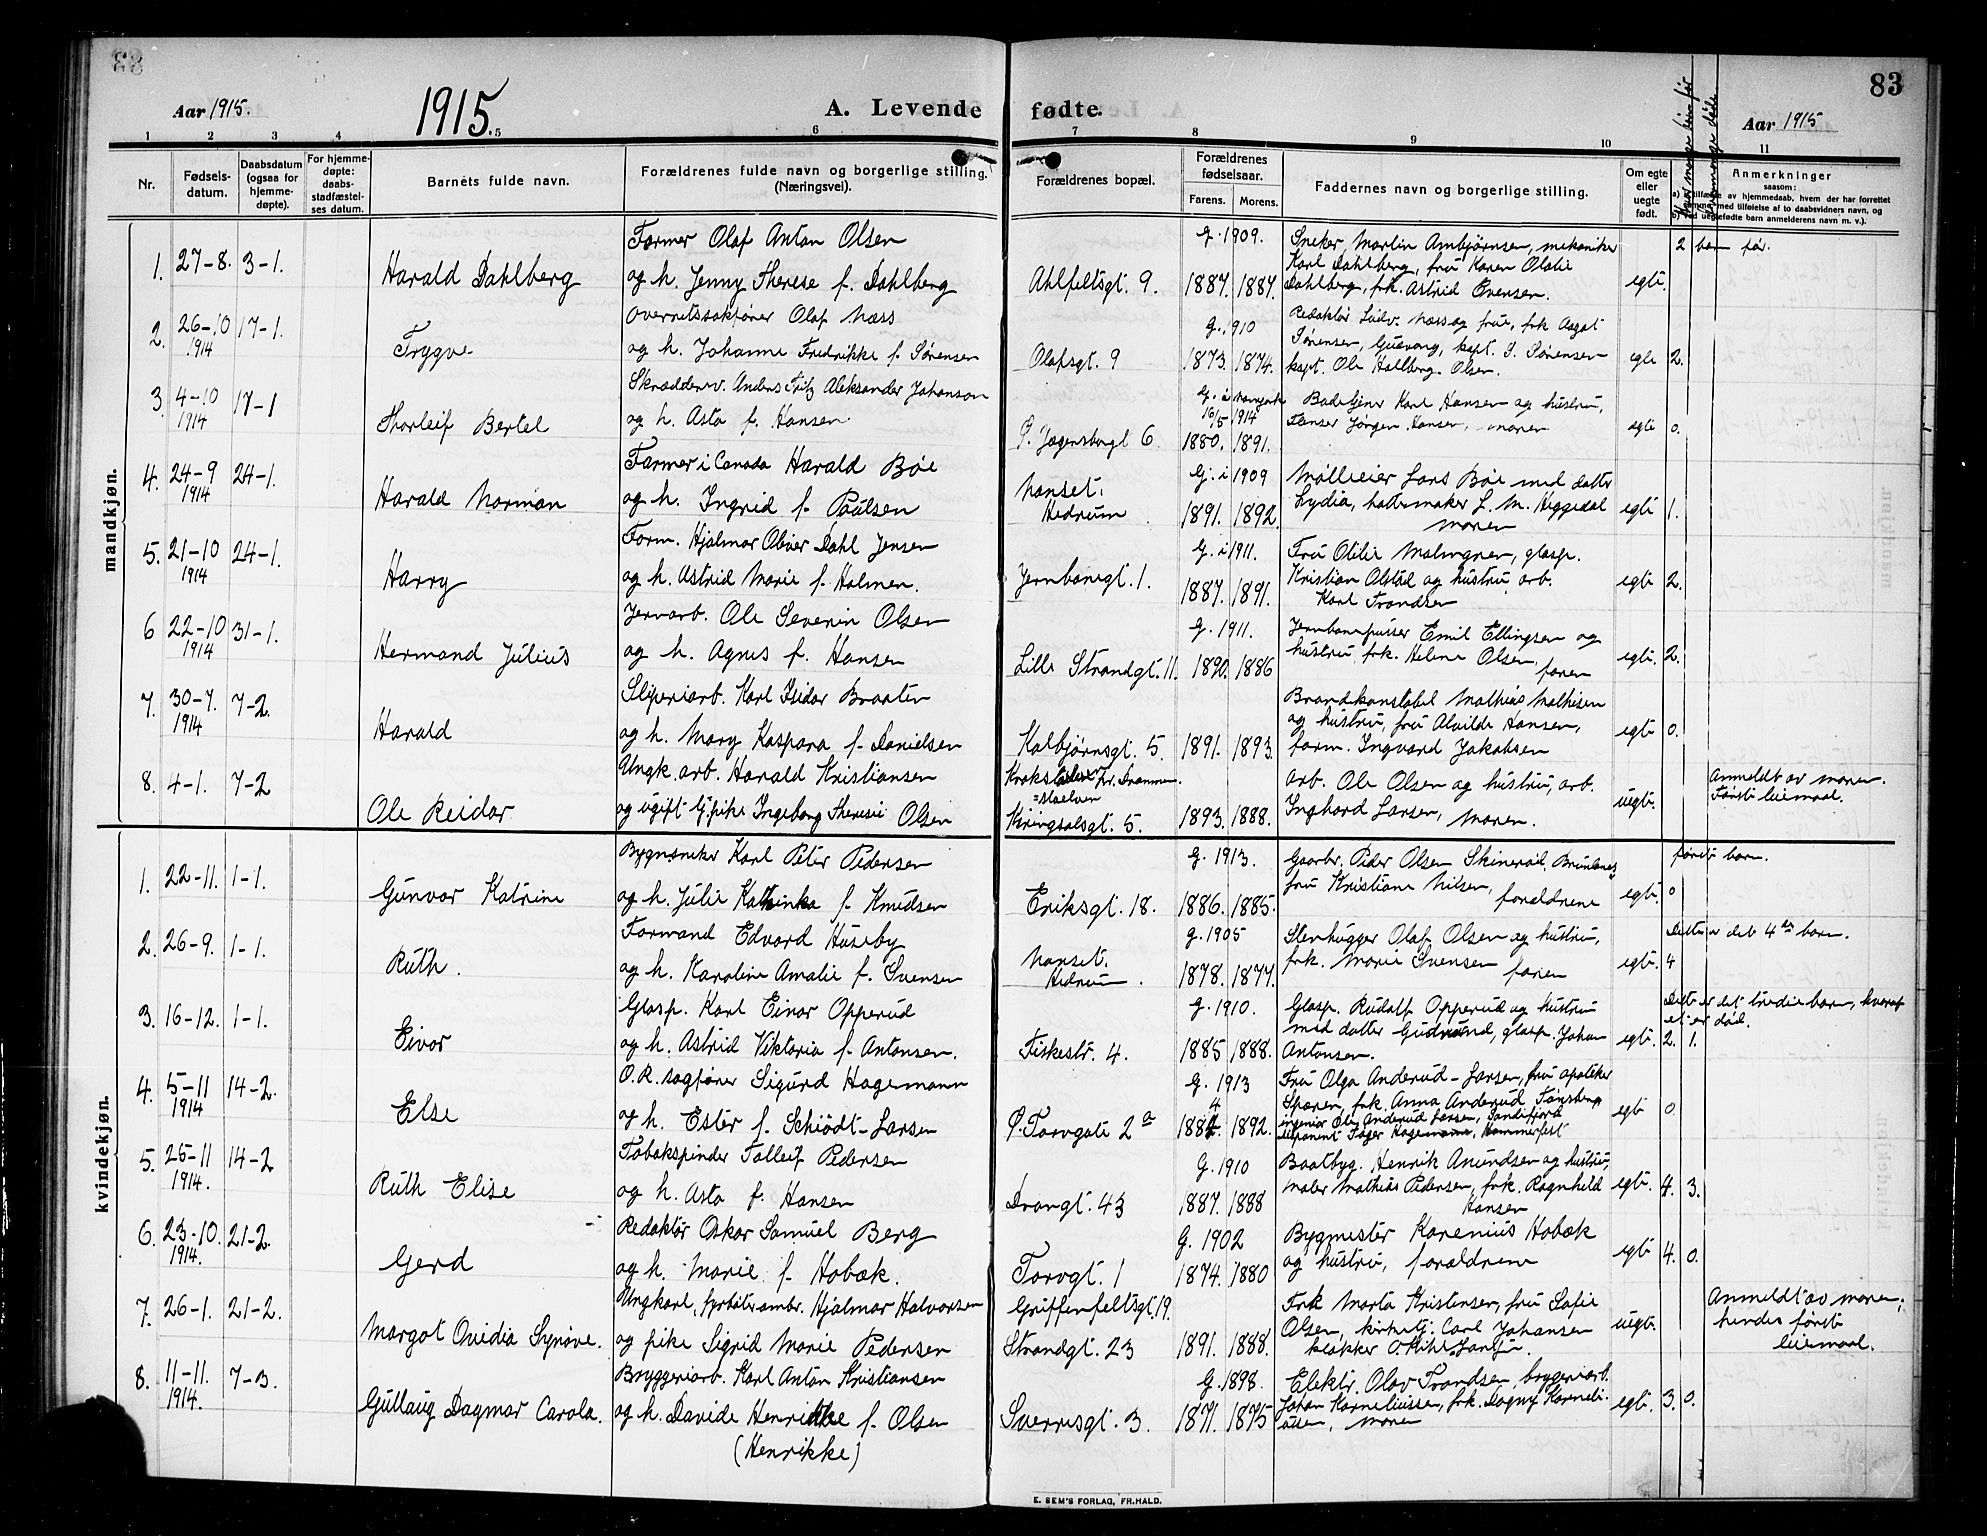 83
Aar 1915.
1915.
A. Levende fødte.
Aar 1915
1 2 3 4 5 6 7 8 9 10 11
Nr.
Fødsels-
datum.
Daabsdatum
(ogsaa for
hjemme-
døpte).
For hjemme-
døpte:
daabs-
stadfæstel-
ses datum.
Barnets fulde navn.
Forældrenes fulde navn og borgerlige stilling.
(Næringsvei).
Forældrenes bopæl.
Forældrenes
fødselsaar.
Farens. Morens.
Faddernes navn og borgerlige stilling.
Om egte
eller
uegte
født.
Anmerkninger
saasom:
mandkjøn.
1. 27-8. 3-1.
Harald Dahlberg
Farmer Olaf Anton Olsen
og h. Jenny Therese f. Dahlberg
Ahlfeltsgt. 9.
g. 1909.
1887. 1887.
Sneker Martin Ambjørnsen, mekaniker
Karl Dahlberg, fru Karen Olalie
Dahlberg, frk. Astrid Evensen.
egte.
2 barn før.
2. 26-10 1914 17-1.
Trygve
Overretssakfører Olaf Næss
og h. Johanne Fredrikke f. Sørensen
Olafsgt. 9
g. 1910
1873. 1874.
Redaktør Ludv. Næss og frue, frk Aagot
Sørensen, kapt. S. Sørensen
kapt. Ole Hallberg Olsen.
egte 2.
3. 4-10 1914 17-1
Thorleif Bertel
Skrædderv. Anders Fritz Aleksander Johanson
og h. Asta f. Hansen
Ø. Jegersborggt 6
G. i
16/5 1914
1880. 1891.
Badetjener Karl Hansen og hustru,
Flenser Jørgen Hansen, moren
egte 0.
4. 24-9 1914 24-1.
Harald Norman
Farmer i Canada Harald Bøe
og h. Ingrid f. Paulsen
Nanset.
Hedrum
G. i 1909
1891. 1892
Mølleeier Lars Bøe med datter
Lydia, hattemaker L. M. Heggedal
moren
egte 1.
5. 21-10 1914 24-1.
Harry
Form. Hjalmar Oliver Dahl Jensen
og h. Astrid Marie f. Holmen.
Jernbanegt. 1.
G. i 1911.
1887. 1891.
Fru Otilie Malmgren, glasp.
Kristian Olstad og hustru, arb.
Karl Trandsen
egte 2.
6 22-10 1914 31-1.
Hermand Julius
Jernarb. Ole Severin Olsen
og h. Agnes f. Hansen
Lille Strandgt. 11.
G. 1911.
1890. 1886
Jernbanepusser Emil Ellingsen og
hustru, frk. Helene Olsen,
faren
egte. 2.
7. 30-7. 1914 7-2.
Harald
Sliperiarb. Karl Isidor Braaten
og h. Mary Kaspara f. Danielsen
Kalbjørnsgt. 5
1891. 1893.
Brandkonstabel Mathias Mathisen
og hustru, fru Alvilde Hansen,
form. Ingvard Jakobsen
egte 0.
8. 4-1. 7-2
Ole Reidar
Ungk. arb. Harald Kristiansen
og ugift tj.pike Ingeborg Theresie Olsen
Kringsalsgt. 5.
1893. 1888.
arb. Ole Olsen og hustru, arb.
Inghard Larsen, moren.
uegte.
Anmeldt av moren.
Første leiemaal.
kvindekjøn.
1. 22-11. 1-1.
Gunvor Katrine
Bygnsneker Karl Peter Pedersen
og h. Julie Kathinka f. Knudsen
Eriksgt. 18.
g. 1913.
1886. 1885.
Gaarbr. Peder Olsen Skinerød, Brunlanes,
fru Kristiane Nilsen, forældrene
egte. 0
første barn.
2. 26-9. 1-1.
Ruth.
Formand Edvard Huseby
og h. Karoline Amalie f. Svensen
Nanset.
Hedrum.
g. 1905
1878. 1877.
Stenhugger Olaf Olsen og hustru,
frk. Marie Svensen faren
egte. 4
Dette er det 4de barn.
3. 16-12. 1-1.
Eivor
Glasp. Karl Einar Opperud
og h. Astrid Viktoria f. Antonsen.
Fiskestr. 4.
g. 1910.
1885 1888.
Glasp. Rudolf Opperud og hustru
med datter Gudrund, glasp. Johan
Antonsen.
egte. 2. 1.
Dette er det tredie barn, hvoraf
et er død.
4. 5-11 1914 14-2.
Else
O.R. sagfører Sigurd Hagemann
og h. Ester f. Schiødt-Larsen
Ø. Torvgate 2a
G. 1913
1884 1892.
Fru Olga Anderud-Larsen, fru apoteker
Sparen, frk. Anna Anderud Tønsberg
ingeniør Ole Anderud Larsen, Sandefjord
disponent Fager Hagemann, Hammerfest
egte 0.
5. 25-11 1914. 14-2
Ruth Elise
Tobakspinder Tolleif Pedersen
og h. Asta f. Hansen
Dronngt. 43
G. 1910
1887. 1888
Baatbyg. Henrik Amundsen og hustru,
maler Mathias Pedersen, frk. Ragnhild
Hansen
egte. 4. 3.
6. 23-10. 1914. 21-2
Gerd
Redaktør Oskar Samuel Berg
og h. Marie f. Hobæk.
Torvgt. 1
G. 1902
1874. 1880
Bygmester Karenius Hobæk
og hustru, forældrene
egte 4. 0.
7. 26-1. 21-2.
Margot Ovidia Synøve.
Ungkarl, fyrbøterambr. Hjalmar Halvorsen
og pike Sigrid Marie Pedersen
Griffenfeltsgt. 19.
Strandgt. 23
1891. 1888.
Frk Marta Kristensen, fru Sofie
Olsen, kirketj. Carl Johansen
klokker
uegte.
Anmeldt av moren;
hendes første
leiemaal.
8. 11-11. 1914. 7-3.
Gullaug Dagmar Carola.
Bryggeriarb. Karl Anton Kristiansen
og h. Davide Henrikke f. Olsen
(Henrikke)
Sverresgt. 3.
G. 1898.
1871. 1875
Elektr. Olav Trandsen, bryggeriarb.
Johan Korneliussen, frk. Dagny Korneli-
ussen, moren
egte. 3. 0.
E. SEM'S FORLAG, FR.HALD.